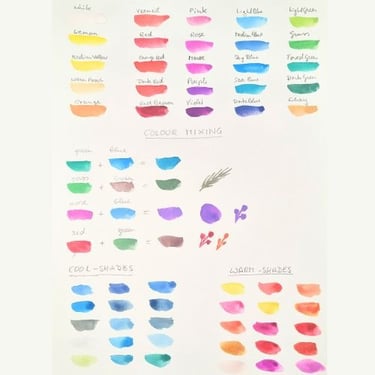 White Vermeil Pink Light Blue Light Green
Lemon Red Rose Medium Blue Green
Medium Yellow Orange Red Mauve Sky Blue Forest Green
Warm Peach Dark Red Purple Sea Blue Dark Green
Orange Red Brown Violet Dark Blue Clay
COLOUR MIXING
green + blue =
green + =
rose + blue =
red + green =
COOL-SHADES WARM-SHADES